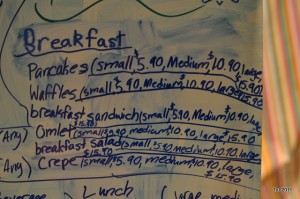 Breakfast
Pancakes (small, $5.90, Medium, $10.90, large, $15.90)
Waffles (small, $5.90, Medium, 10.90, large $15.90
breakfast sandwich (small, $5.90, Medium, $10.90, $15.90
(Any) Omlet (small, $5.90, medium, $10.90, large, $15.90
breakfast salad (small, 5.90, medium, 10.90, large, $15.90
(Any) Crepe (small, 5.90, medium, 10.90, large, $15.90
Lunch